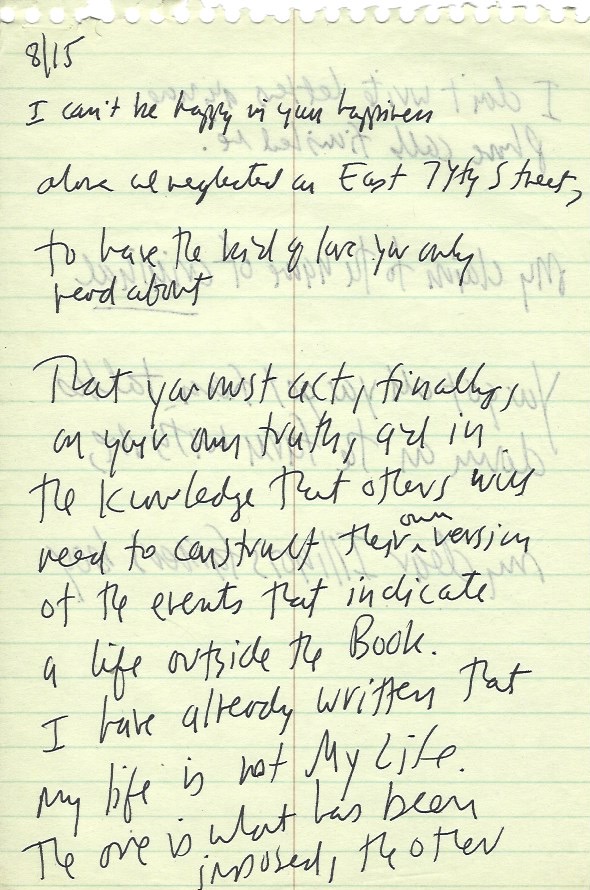 8/15
I can't be happy in your happiness
alone neglected on East 74th Street,
to have the kind of love you only
read about
That you must act, finally,
on your own truth, and in
the knowledge that others will
need to construct their own version
of the events that indicate
a life outside the Book.
I have already written that
my life is not My Life.
The one is what has been
imposed, the other